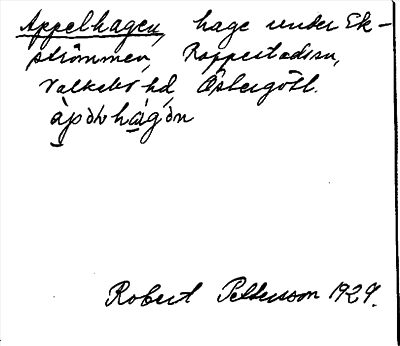 Appelhagen, hage under Ek-
strömmen, Rappestad sn,
Valkebo hd, Östergötl.
àpəlhágən
Robert Pettersson 1929.